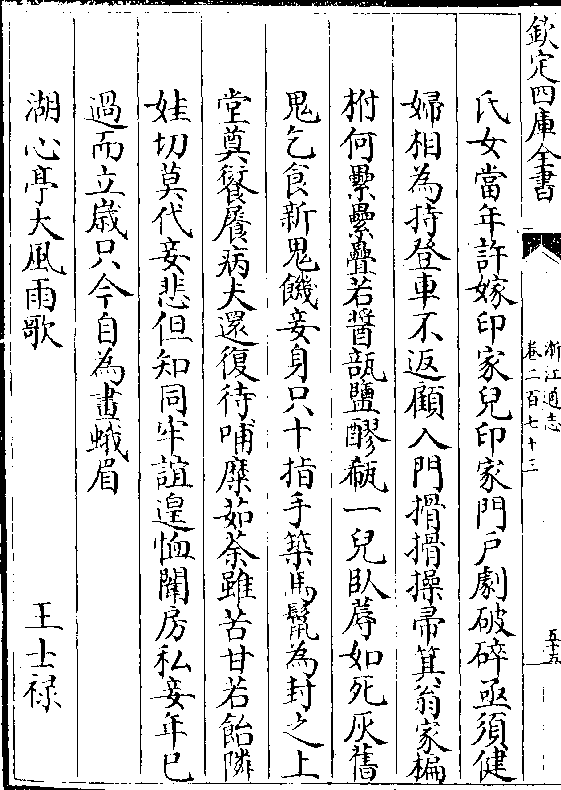 欽定四庫全書
浙江通志
卷二百七十三
五十五
氏女當年許嫁印家兒印家門戶劇破碎亟須健
婦相為持登車不返顧入門搰搰操帚箕翁家楄
柎何纍纍疊若醬瓿鹽醪瓻一兒臥蓐如死灰舊
鬼乞食新鬼饑妾身只十指手築馬鬛為封之上
堂奠餐饜病夫還復待哺糜茹荼雖苦甘若飴隣
娃切莫代妾悲但知同牢誼遑恤閨房私妾年已
過而立歲只今自為畫蛾眉
湖心亭大風雨歌　王士禄